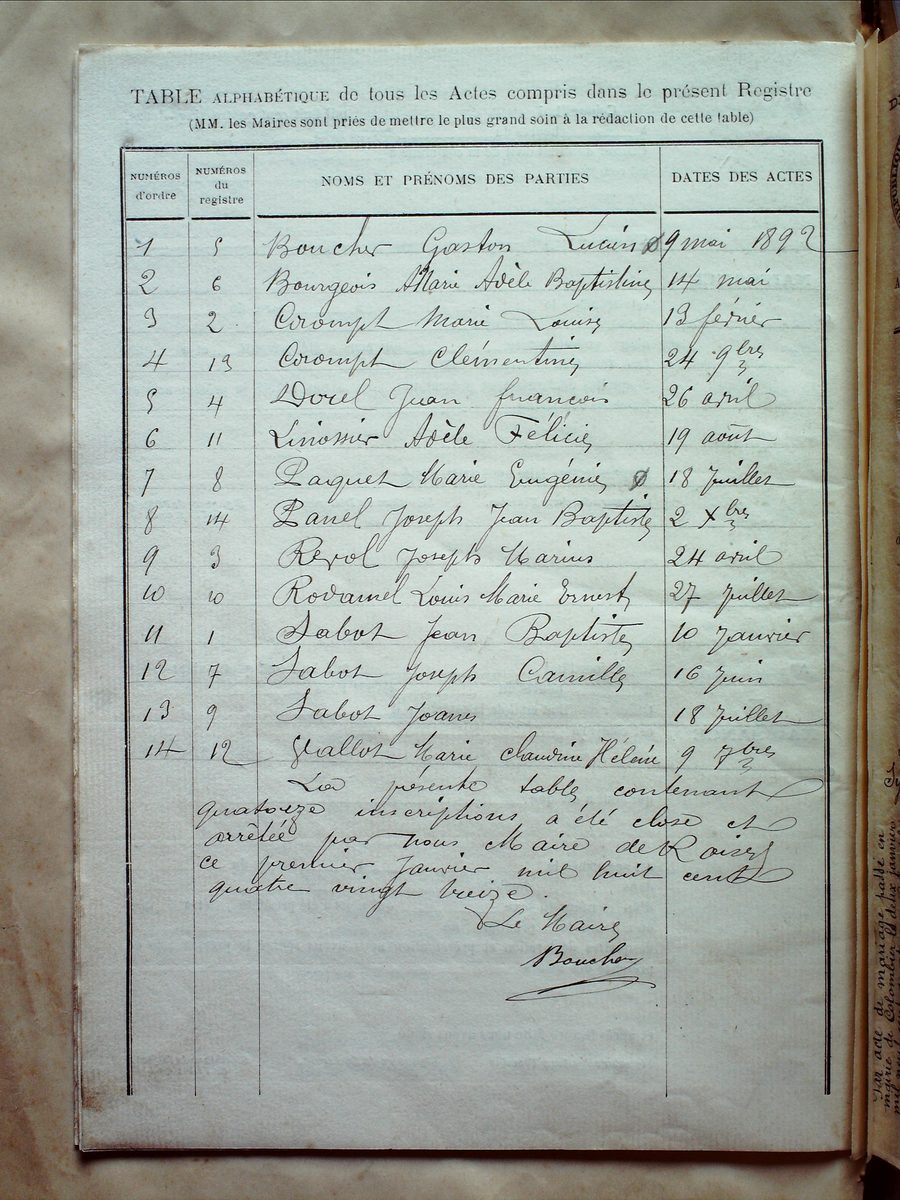 TABLE ALPHABÉTIQUE de tous les Actes compris dans le présent Registre
(MM. les Maires sont priés de mettre le plus grand soin à la rédaction de cette table)
NUMÉROS d'ordre NUMÉROS du registre NOMS ET PRÉNOMS DES PARTIES DATES DES ACTES
1 5 Boucher Gaston Lucien ø 9 mai 1892
2 6 Bourgeois Marie Adèle Baptistine 14 mai
3 2 Crompt Marie Louise 13 février
4 13 Crompt Clémentine 24 9bre
5 4 Dorel Jean François 26 avril
6 11 Linossier Adèle Félicie 19 août
7 8 Paquet Marie Eugénie ø 18 Juillet
8 14 Panel Joseph Jean Baptiste 2 Xbre
9 3 Revol Joseph Marius 24 avril
10 10 Rodamel Louis Marie Ernest 27 Juillet
11 1 Sabot Jean Baptiste 10 Janvier
12 7 Sabot Joseph Camille 16 Juin
13 9 Sabot Joanes 18 Juillet
14 12 Vallot Marie Claudine Hélène 9 7bre
La présente table contenant
quatorze inscriptions a été close et
arrêtée par nous Maire de Roisey
ce premier Janvier mil huit cent
quatre vingt treize.
Le Maire
Boucher
Par acte de mariage passé en
mairie de Colombier le deux janvier